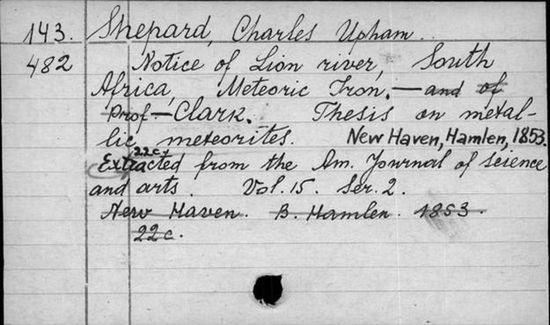 143. Shepard, Charles Upham.
482 Notice of Lion river, South
Africa, Meteoric Iron. — and of
Prof — Clark. Thesis on metal-
lic meteorites. New Haven, Hamlen, 1853.
22 c.
Extracted from the Am. Journal of science
and arts. Vol. 15. Ser. 2.
New Haven. B. Hamlen. 1853.
22 c.